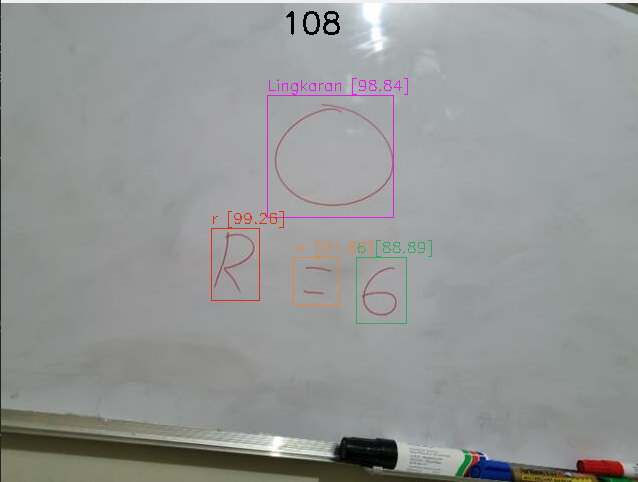 108
Lingkaran [98.84]
r [99.26]
6 [88.89]
R = 6